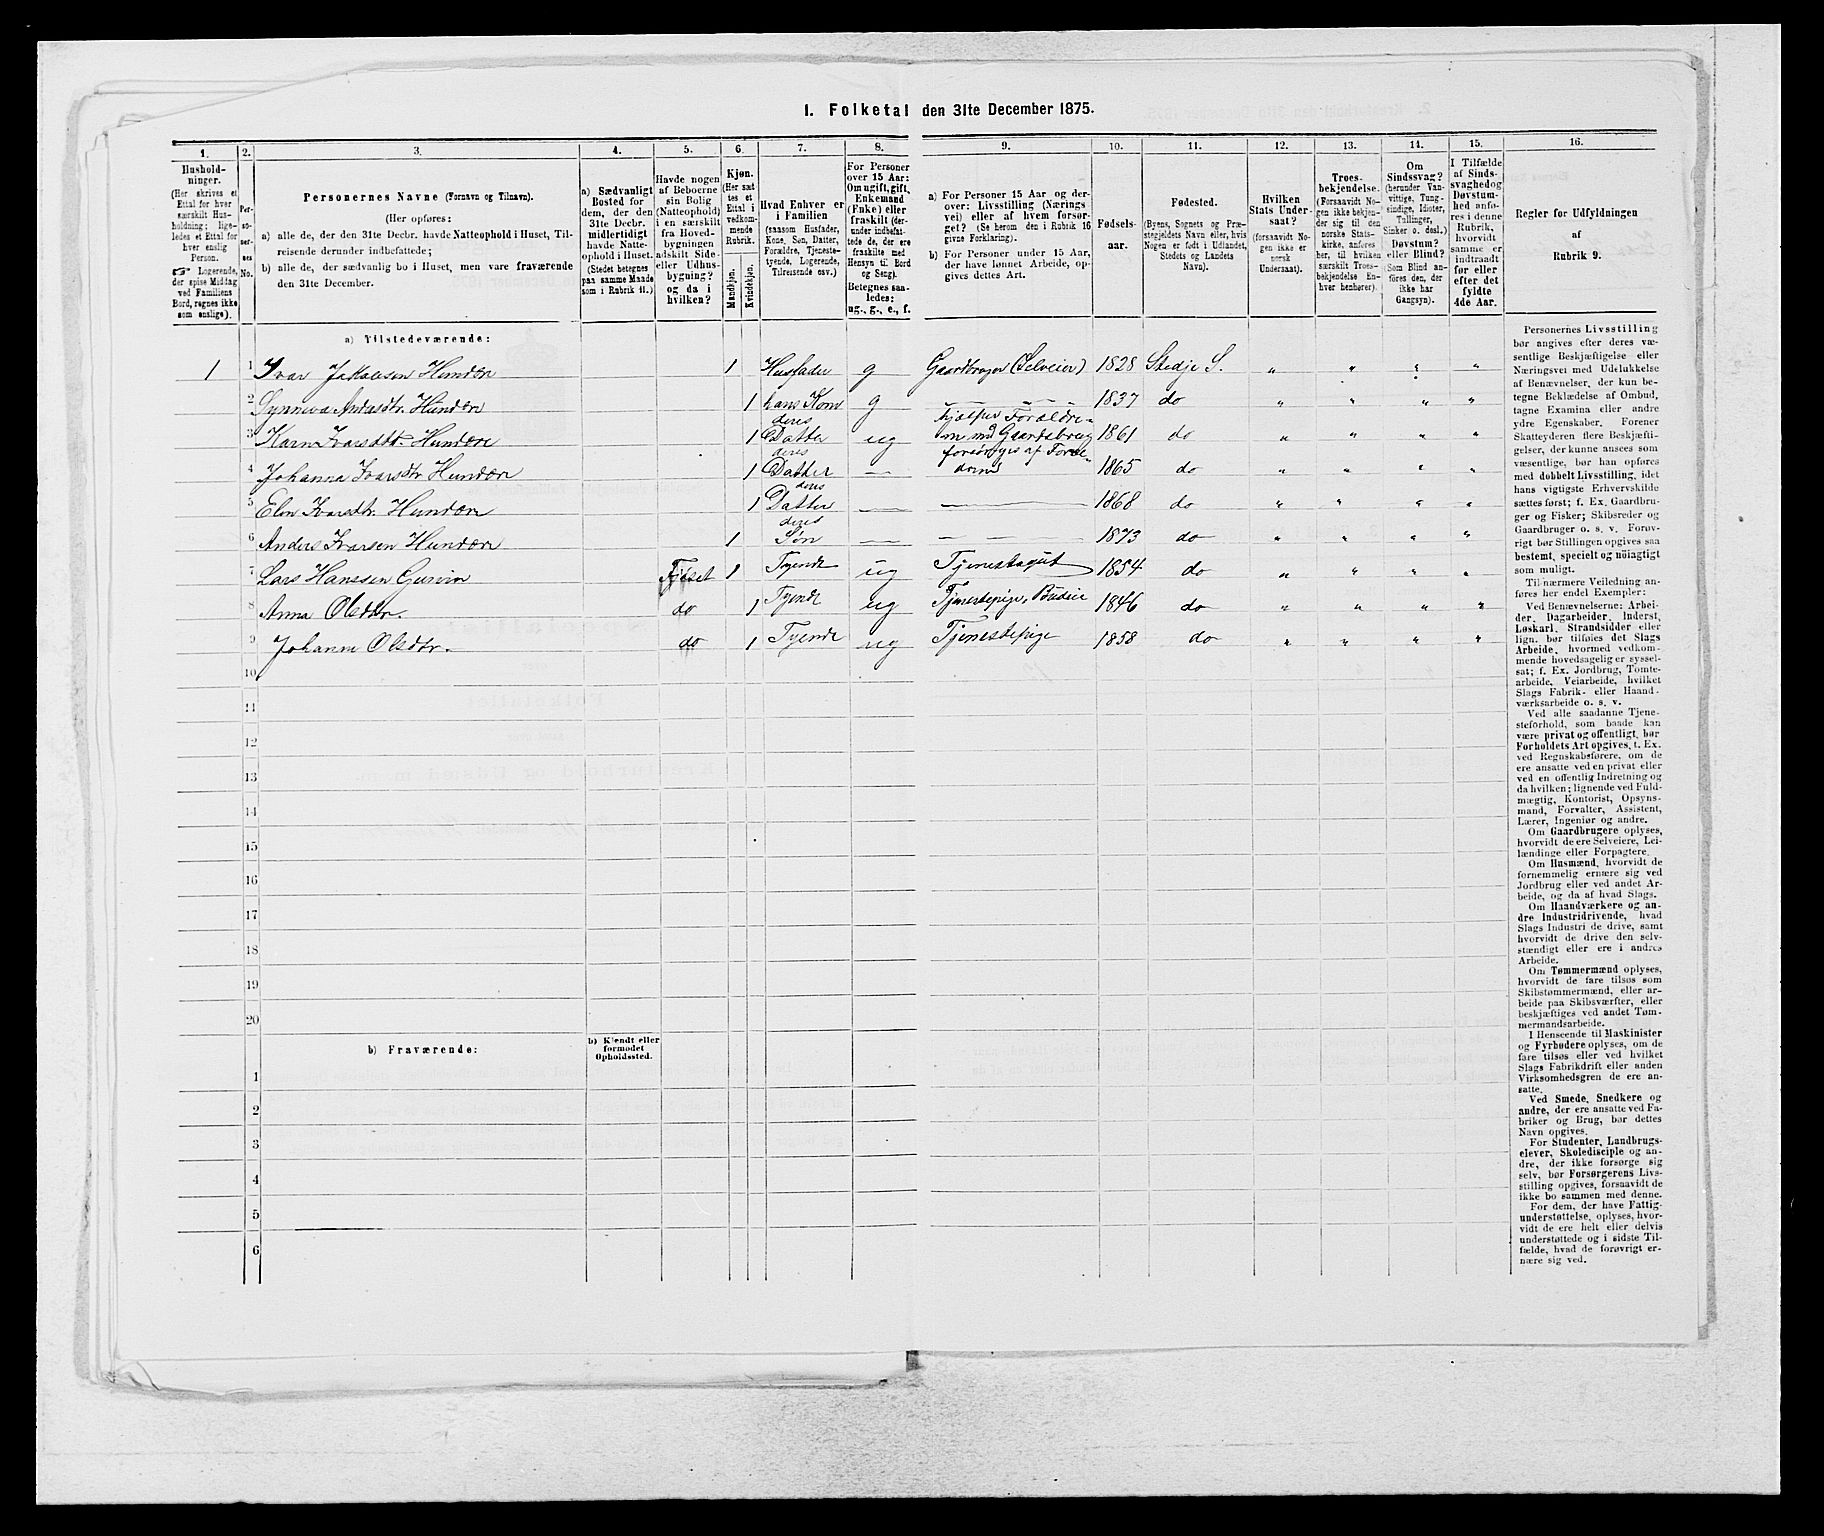 1. Folketal den 31te December 1875.
1. 2. 3. 4. 5. 6. 7. 8. 9. 10. 11. 12. 13. 14. 15. 16.
Hushold-
ninger.
(Her skrives et
Ettal for hver
særskilt Hus-
holdning; lige-
ledes et Ettal for
hver enslig
Person.
☞ Logerende,
der spise Middag
ved Familiens
Bord, regnes ikke
som enslige).
Per-
so-
ner-
nes
No.
Personernes Navne (Fornavn og Tilnavn).
(Her opføres:
a) alle de, der den 31te Decbr. havde Natteophold i Huset, Til-
reisende derunder indbefattede;
b) alle de, der sædvanlig bo i Huset, men vare fraværende
den 31te December.
a) Sædvanligt
Bosted for
dem, der den
31te Decbr.
midlertidigt
havde Natte-
ophold i Huset.
(Stedet betegnes
paa samme Maade
som i Rubrik 11.)
Havde nogen
af Beboerne
sin Bolig
(Natteophold)
i en særskilt
fra Hoved-
bygningen
adskilt Side-
eller Udhus-
bygning?
og da i
hvilken?
Kjøn.
(Her sæt-
tes et
Ettal i
vedkom-
mende
Rubrik.
Mandkjøn.
Kvindekjøn.
Hvad Enhver er
i Familien
(saasom Husfader,
Kone, Søn, Datter,
Forældre, Tjeneste-
tyende, Logerende,
Tilreisende osv.)
For Personer
over 15 Aar:
Om ugift, gift,
Enkemand
(Enke) eller
fraskilt (der-
under indbefat-
tede de, der ere
fraskilte med
Hensyn til Bord
og Seng).
Betegnes saa-
ledes:
ug., g., e., f.
a) For Personer 15 Aar og der-
over: Livsstilling (Nærings-
vei) eller af hvem forsør-
get? (Se herom den i Rubrik 16
givne Forklaring).
b) For Personer under 15 Aar,
der have lønnet Arbeide, op-
gives dettes Art.
Fødsels-
aar.
Fødested.
(Byens, Sognets og Præ-
stegjeldets Navn eller, hvis
Nogen er født i Udlandet,
Stedets og Landets
Navn).
Hvilken
Stats Under-
saat?
(forsaavidt No-
gen ikke er
norsk
Undersaat).
Troes-
bekjendelse.
(Forsaavidt No-
gen ikke bekjen-
der sig til den
norske Stats-
kirke, anføres
her, til hvilken
særskilt Troes-
bekjendelse En-
hver henhører).
Om
Sindssvag?
(herunder Van-
vittige, Tung-
sindige, Idioter,
Tullinger,
Sinker o. desl.)
Døvstum?
eller Blind?
(Som Blind an-
føres den, der
ikke har
Gangsyn).
I Tilfælde
af Sinds-
svaghed og
Døvstum-
hed anfø-
res i denne
Rubrik,
hvorvidt
samme er
indtraadt
før eller
efter det
fyldte
4de Aar.
Regler for Udfyldningen
af
Rubrik 9.
a) Tilstedeværende:
1 1 Ivar Jakobsen Hundere 1 Husfader g Gaardbruger (Selveier) 1828 Stedje S. " " " "
2 Synneva Andersdtr. Hundere 1 hans Kone g — — — 1837 do " " " "
3 Karn Ivarsdtr. Hundere 1 deres Datter ug hjælper Forældre-ne med Gaardsbrug 1861 do " " " "
4 Johanna Ivarsdtr Hundere 1 deres Datter — forsørges af Foræl-drene 1865 do " " " "
5 Elen Ivarsdtr. Hundere 1 deres Datter — — 1868 do " " " "
6 Anders Ivarsen Hundere 1 deres Søn — — — — 1873 do " " " "
7 Lars Hanssen Gurvin Fjøset 1 Tyende ug Tjenestegut 1854 do " " " "
8 Anna Olsdtr. do 1 Tyende ug Tjenestepige, Budeie 1846 do " " " "
9 Johanne Olsdtr. do 1 Tyende ug Tjenestepige 1858 do " " " "
10
11
12
13
14
15
16
17
18
19
20
b) Fraværende:
b) Kjendt eller
formodet
Opholdssted.
1
2
3
4
5
6
Personernes Livsstilling
bør angives efter deres væ-
sentlige Beskjæftigelse eller
Næringsvei med Udelukkelse
af Benævnelser, der kun be-
tegne Beklædelse af Ombud,
tagne Examina eller andre
ydre Egenskaber. Forener
Skatteyderen flere Beskjæfti-
gelser, der kunne ansees som
væsentlige, bør han opføres
med dobbelt Livsstilling, idet
hans vigtigste Erhvervskilde
sættes først; f. Ex. Gaardbru-
ger og Fisker; Skibsreder og
Gaardbruger o. s. v. Forøv-
rigt bør Stillingen opgives saa
bestemt, specielt og nöiagtigt
som muligt.
Til nærmere Veiledning an-
føres her endel Exempler:
Ved Benævnelserne: Arbei-
der, Dagarbeider, Inderst,
Løskarl, Strandsidder eller
lign. bør tilføies det Slags
Arbeide, hvormed vedkom-
mende hovedsagelig er syssel-
sat; f. Ex. Jordbrug, Tomte-
arbeide, Veiarbeide, hvilket
Slags Fabrik- eller Haand-
værksarbeide o. s. v.
Ved alle saadanne Tjene-
steforhold, som baade kan
være privat og offentligt, bør
Forholdets Art opgives, t. Ex.
ved Regnskabsførere, om de
ere ansatte ved en privat eller
ved en offentlig Indretning og
da hvilken; lignende ved Fuld-
mægtig, Kontorist, Opsyns-
mand, Forvalter, Assistent,
Lærer, Ingeniør og andre.
Om Gaardbrugere oplyses,
hvorvidt de ere Selveiere, Lei-
lændinge eller Forpagtere.
Om Husmænd, hvorvidt de
fornemmelig ernære sig ved
Jordbrug eller ved andet Ar-
beide, og da af hvad Slags.
Om Haandværkere og an-
dre Industridrivende, hvad
Slags Industri de drive, samt
hvorvidt de drive den selv-
stændigt eller ere i andres
Arbeide.
Om Tømmermænd oplyses,
hvorvidt de fare tilsøs som
Skibstømmermænd, eller ar-
beide paa Skibsværfter, eller
beskjæftiges ved andet Tøm-
mermandsarbeide.
I Henseende til Maskinister
og Fyrbødere oplyses, om de
fare tilsøs eller ved hvilket
Slags Fabrikdrift eller anden
Virksomhedsgren de ere an-
satte.
Ved Smede, Snedkere og
andre, der ere ansatte ved Fa-
briker og Brug, bør dettes
Navn opgives.
For Studenter, Landbrugs-
elever, Skoledisciple og an-
dre, der ikke forsørge sig
selv, bør Forsørgerens Livs-
stilling opgives, forsaavidt de
ikke bo sammen med denne.
For dem, der have Fattig-
understøttelse, oplyses, hvor-
vidt de ere helt eller delvis
understøttede og i sidste Til-
fælde, hvad de forøvrigt er-
nære sig ved.